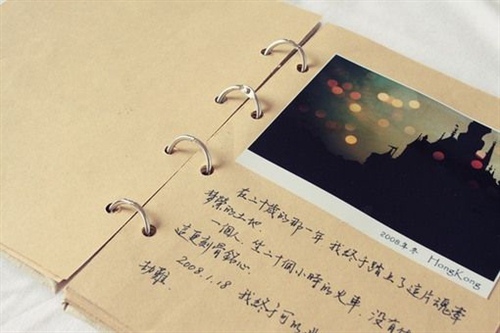 2008年冬 HongKong
在二十歲的那一年 我终于踏上了這片魂牽
梦萦的土地.
一個人.坐二十個小時的火車.沒有
這更刻骨銘心.
2008.1.18 我终于可以
劫難.